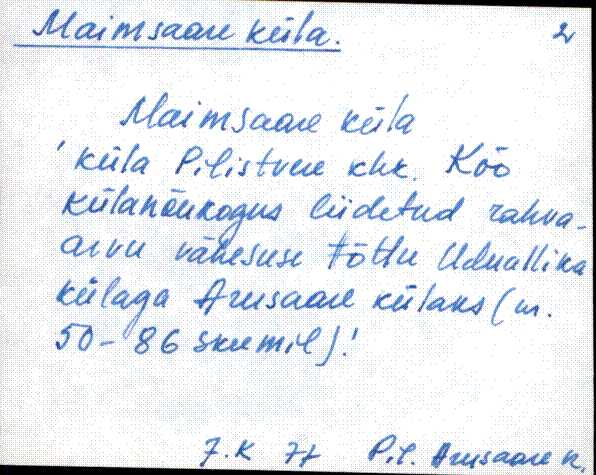 Maimsaare küla. 2
Maimsaare küla
'küla Pilistvere khk. Kõo
külanõukogus liidetud rahva-
arvu vähesuse tõttu Uduallika
külaga Arusaare külaks (nr.
50-86 skeemil)!
J.K 77 Pil. Arusaare k.